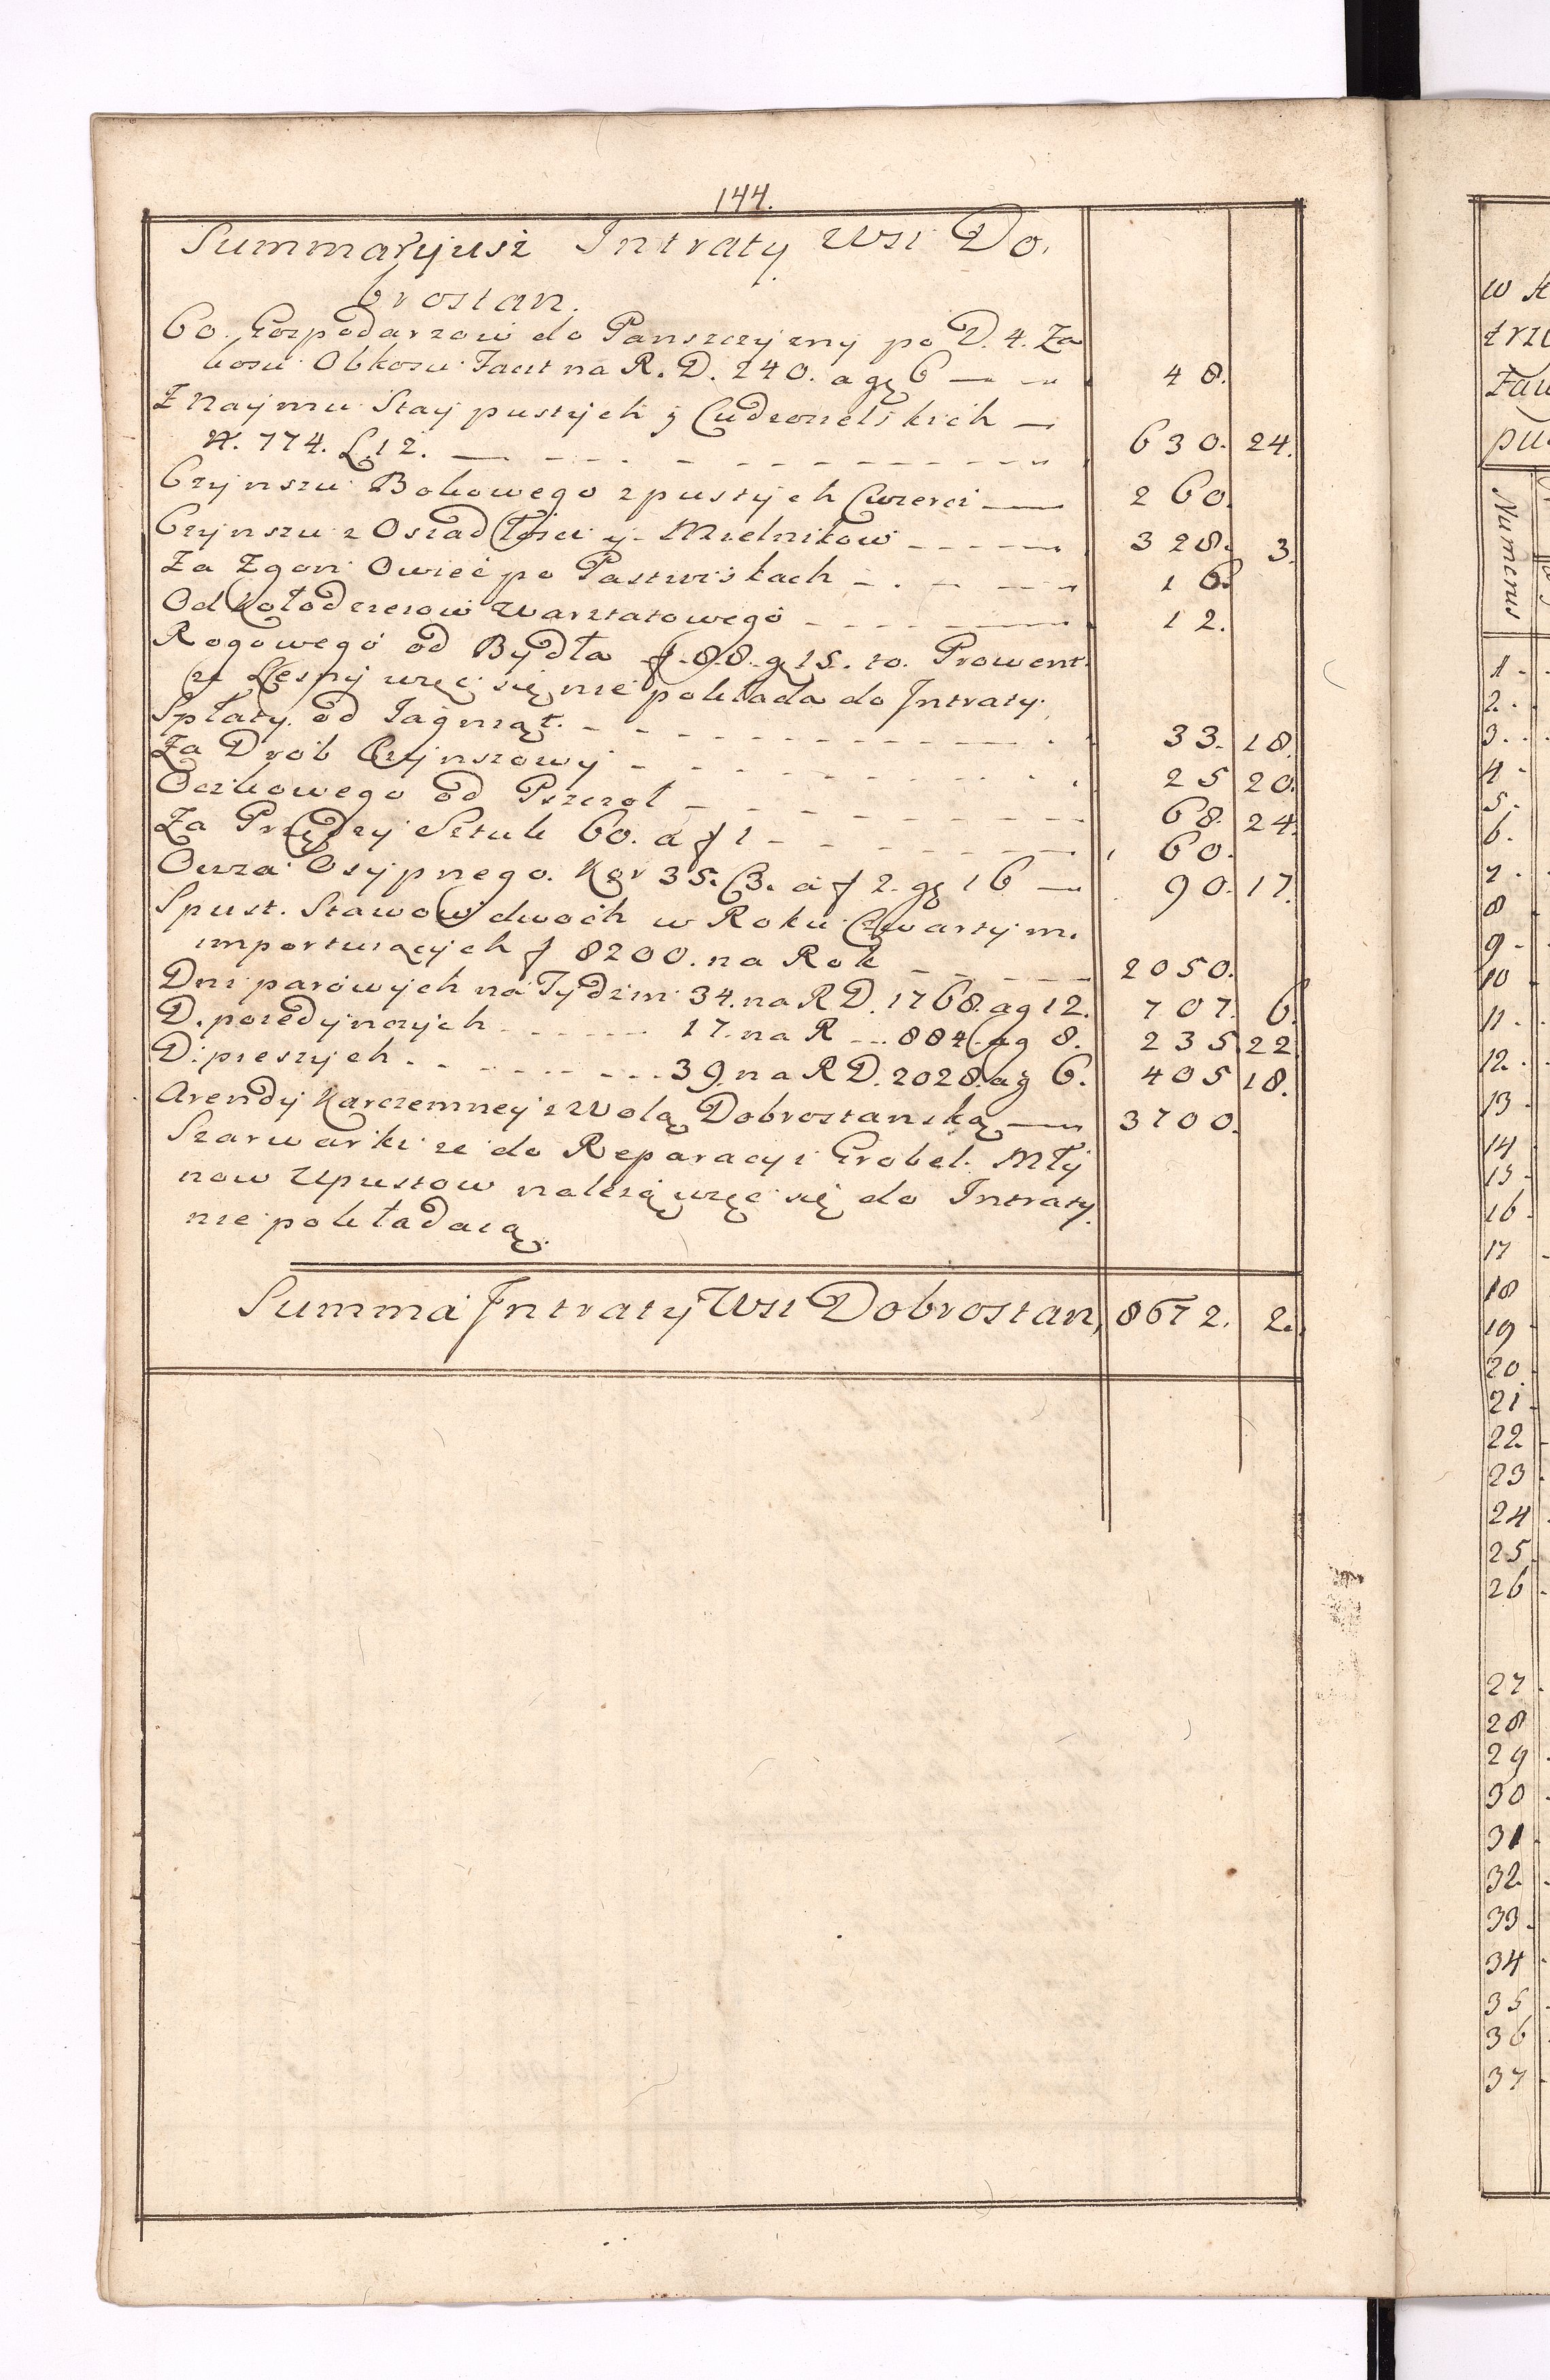 144.
Summaryusz Intraty Wsi Do.
brostan.
60. Gospodarzow do Panszczyzny po D. 4. Za
kosu Obkosu Facit na R. D. 240. a gę 6 — 48.
Z Naymu Stay pustych y Cudzosielskich —
N. 774. L 12. — 630. 24.
Czynszu Bokowego z pustych Cwierci — 260.
Czynszu z Osiadłosci y Mielnikow — 328. 3.
Za Zgon Owiec po Pastwiskach — 16.
Od Kołodzieiow Warstatowego — 12.
Rogowego od Bydła f. 88. g 15. to. Prowent.
Lesny więc się nie pokłada do Intraty.
Spłaty od Iagniąt. — 33. 18.
Za Drob Czynszowy — 25 20.
Oczkowego od Pszczoł — 68. 24.
Za Przędzy Sztuk 60. a f 1 — 60.
Owsa Osypnego. Kor 35. a f 2. gę 16 — 90. 17.
Spust. Stawow dwoch w Roku Czwartym.
importuiących f 8200. na Rok — 2050.
Dni parowych na Tydzin 34. na R D. 1768. a g 12. 707. 6.
D. poiedynczych — 17. na R — 884. a g 8. 235. 22
D. pieszych — 39. na R D. 2028. a g 6. 405 18.
Arendy Karczemney z Wolą Dobrostanską — 3700.
Szarwarki ze do Reparacyi Grobel. Mły
now Upustow należą więc się do Intraty.
nie pokładaią.
Summa Intraty Wsi Dobrostan, 8672. 2.
w
pu
Numerus
1.
2.
3.
4
5.
6.
7.
8
9.
10
11.
12.
13
14
15
16
17
18
19
20
21
22
23
24
25
26
27
28
29
30
31
32
33
34
35
36
37